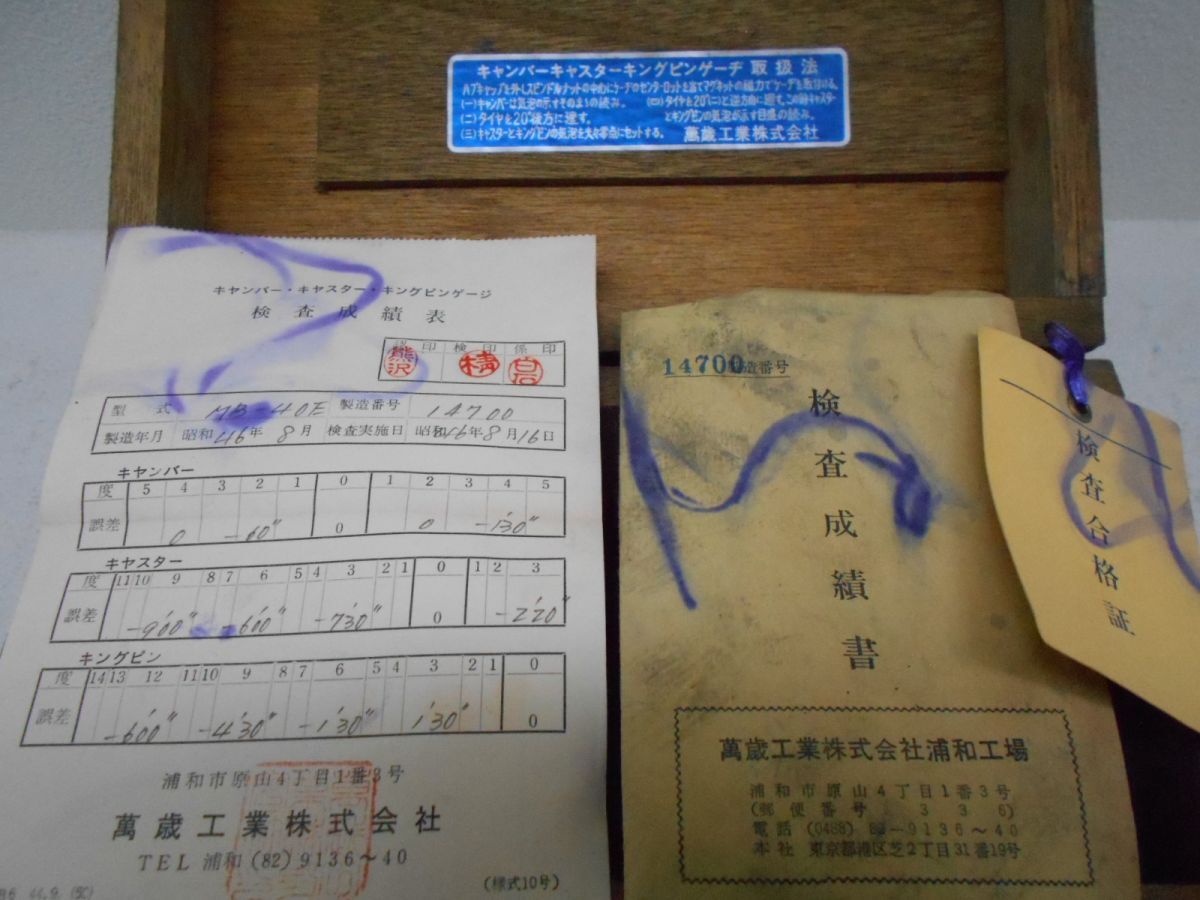 キャンバーキャスターキングピンゲーヂ 取扱法
(一)キャンバーは気泡の示すそのまゝの読み。
(二)タイヤを20°後方に廻す。
(三)キャスターとキングピンの気泡を夫々零点にセットする。
(四)タイヤを20°(二)と逆方向に廻す。この時キャスター
とキングピンの気泡が示す目盛の読み。
萬歳工業株式会社
キャンバー・キャスター・キングピンゲージ
検査成績表
認印 検印 係印
熊沢 精 白石
型式 MB-40E 製造番号 14700
製造年月 昭和46年8月 検査実施日 昭和46年8月16日
キャンバー
度 5 4 3 2 1 0 1 2 3 4 5
誤差 0 -60" 0 0 -1'30"
キャスター
度 11 10 9 8 7 6 5 4 3 2 1 0 1 2 3
誤差 -9'00" -6'00" -7'30" 0 -2'20"
キングピン
度 14 13 12 11 10 9 8 7 6 5 4 3 2 1 0
誤差 -6'00" -4'30" -1'30" 1'30" 0
浦和市原山4丁目1番3号
萬歳工業株式会社
TEL 浦和 (82) 9136~40
(様式10号)
14700 製造番号
検査成績書
萬歳工業株式会社浦和工場
浦和市原山4丁目1番3号
(郵便番号 336)
電話 (0488) 82-9136~40
本社 東京都港区芝2丁目31番19号
検査合格証